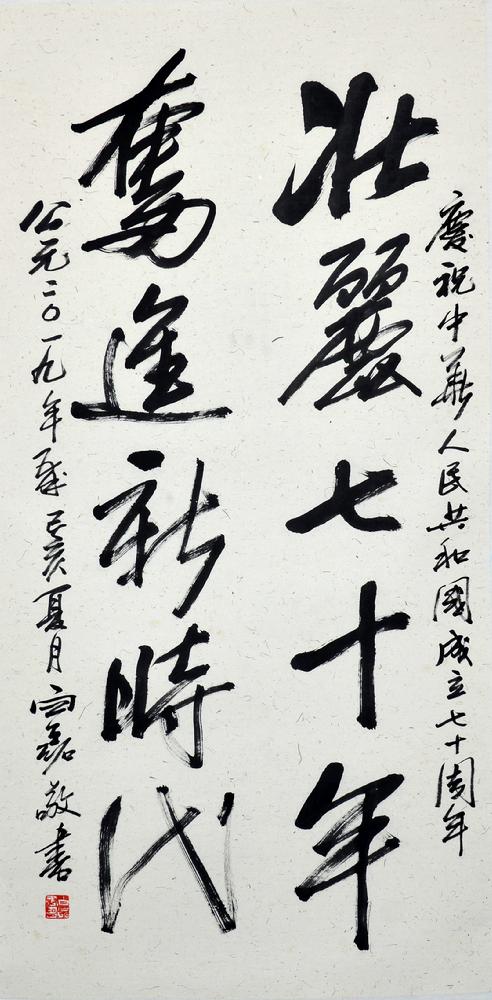 慶祝中華人民共和國成立七十周年
壯麗七十年
奮進新時代
公元二〇一九年歲己亥夏月磊敬書